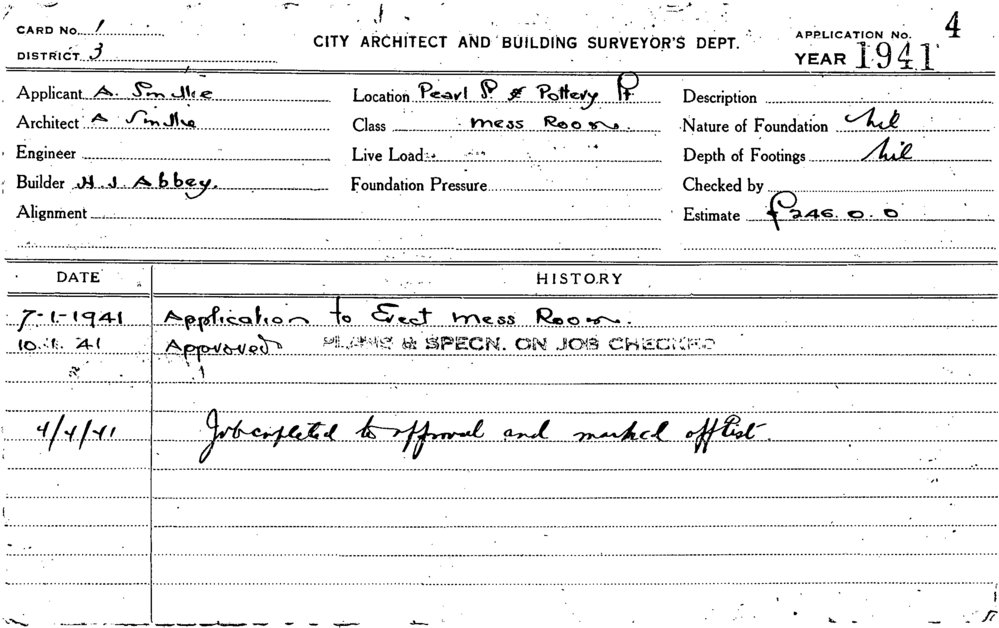 CARD No. 1
DISTRICT 3
CITY ARCHITECT AND BUILDING SURVEYOR'S DEPT.
APPLICATION No. 4
YEAR 1941
Applicant A. Smillie
Location Pearl St & Pottery Pt
Description
Architect A Smillie
Class Mess Room.
Nature of Foundation Nil
Engineer
Live Load
Depth of Footings Nil
Builder H. J. Abbey.
Foundation Pressure
Checked by
Alignment
Estimate £246.0.0
DATE HISTORY
7-1-1941 Application to Erect Mess Room.
10.1.41 Approved PLANS & SPECN. ON JOB CHECKED
4/4/41 Job copleted to approval and marked off list.